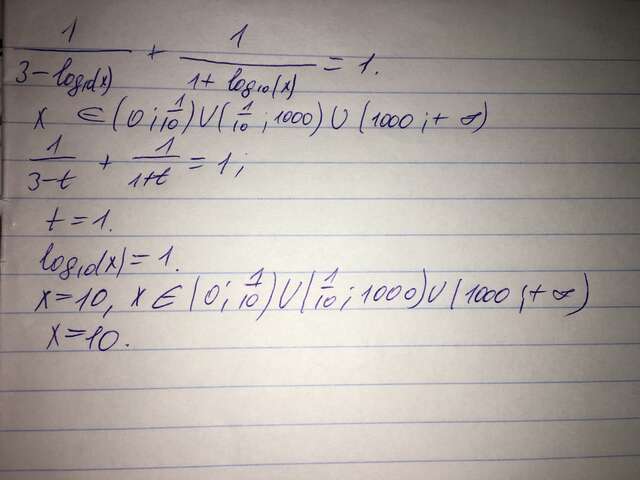 1/(3-log₁₀(x)) + 1/(1+log₁₀(x)) = 1.
x ∈ (0; 1/10) ∪ (1/10; 1000) ∪ (1000; +∞)
1/(3-t) + 1/(1+t) = 1;
t = 1.
log₁₀(x) = 1.
x = 10, x ∈ (0; 1/10) ∪ (1/10; 1000) ∪ (1000; +∞)
x = 10.